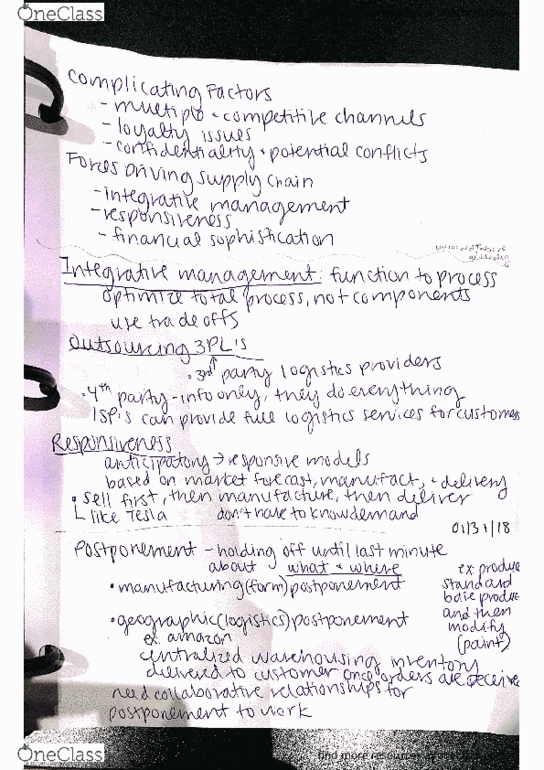 OneClass
Complicating Factors
- multiple + competitive channels
- loyalty issues
- confidentiality + potential conflicts
Forces Driving Supply Chain
- integrative management
- responsiveness
- financial sophistication
Integrative management: function to process
optimize total process, not components
use trade offs
Outsourcing 3PL's
• 3rd party logistics providers
• 4th party - info only, they do everything
ISP's can provide full logistics services for customers
Responsiveness
anticipatory → responsive models
based on market forecast, manufact, + delivery
• sell first, then manufacture, then deliver
like Tesla don't have to know demand
01/31/18
Postponement - holding off until last minute
about what + where
• manufacturing (form) postponement
ex produce
standard
base produce
and then
modify
(paint)
• geographic (logistics) postponement
ex. amazon
centralized warehousing inventory
delivered to customer once orders are receive
need collaborative relationships for
postponement to work
OneClass
find more resources